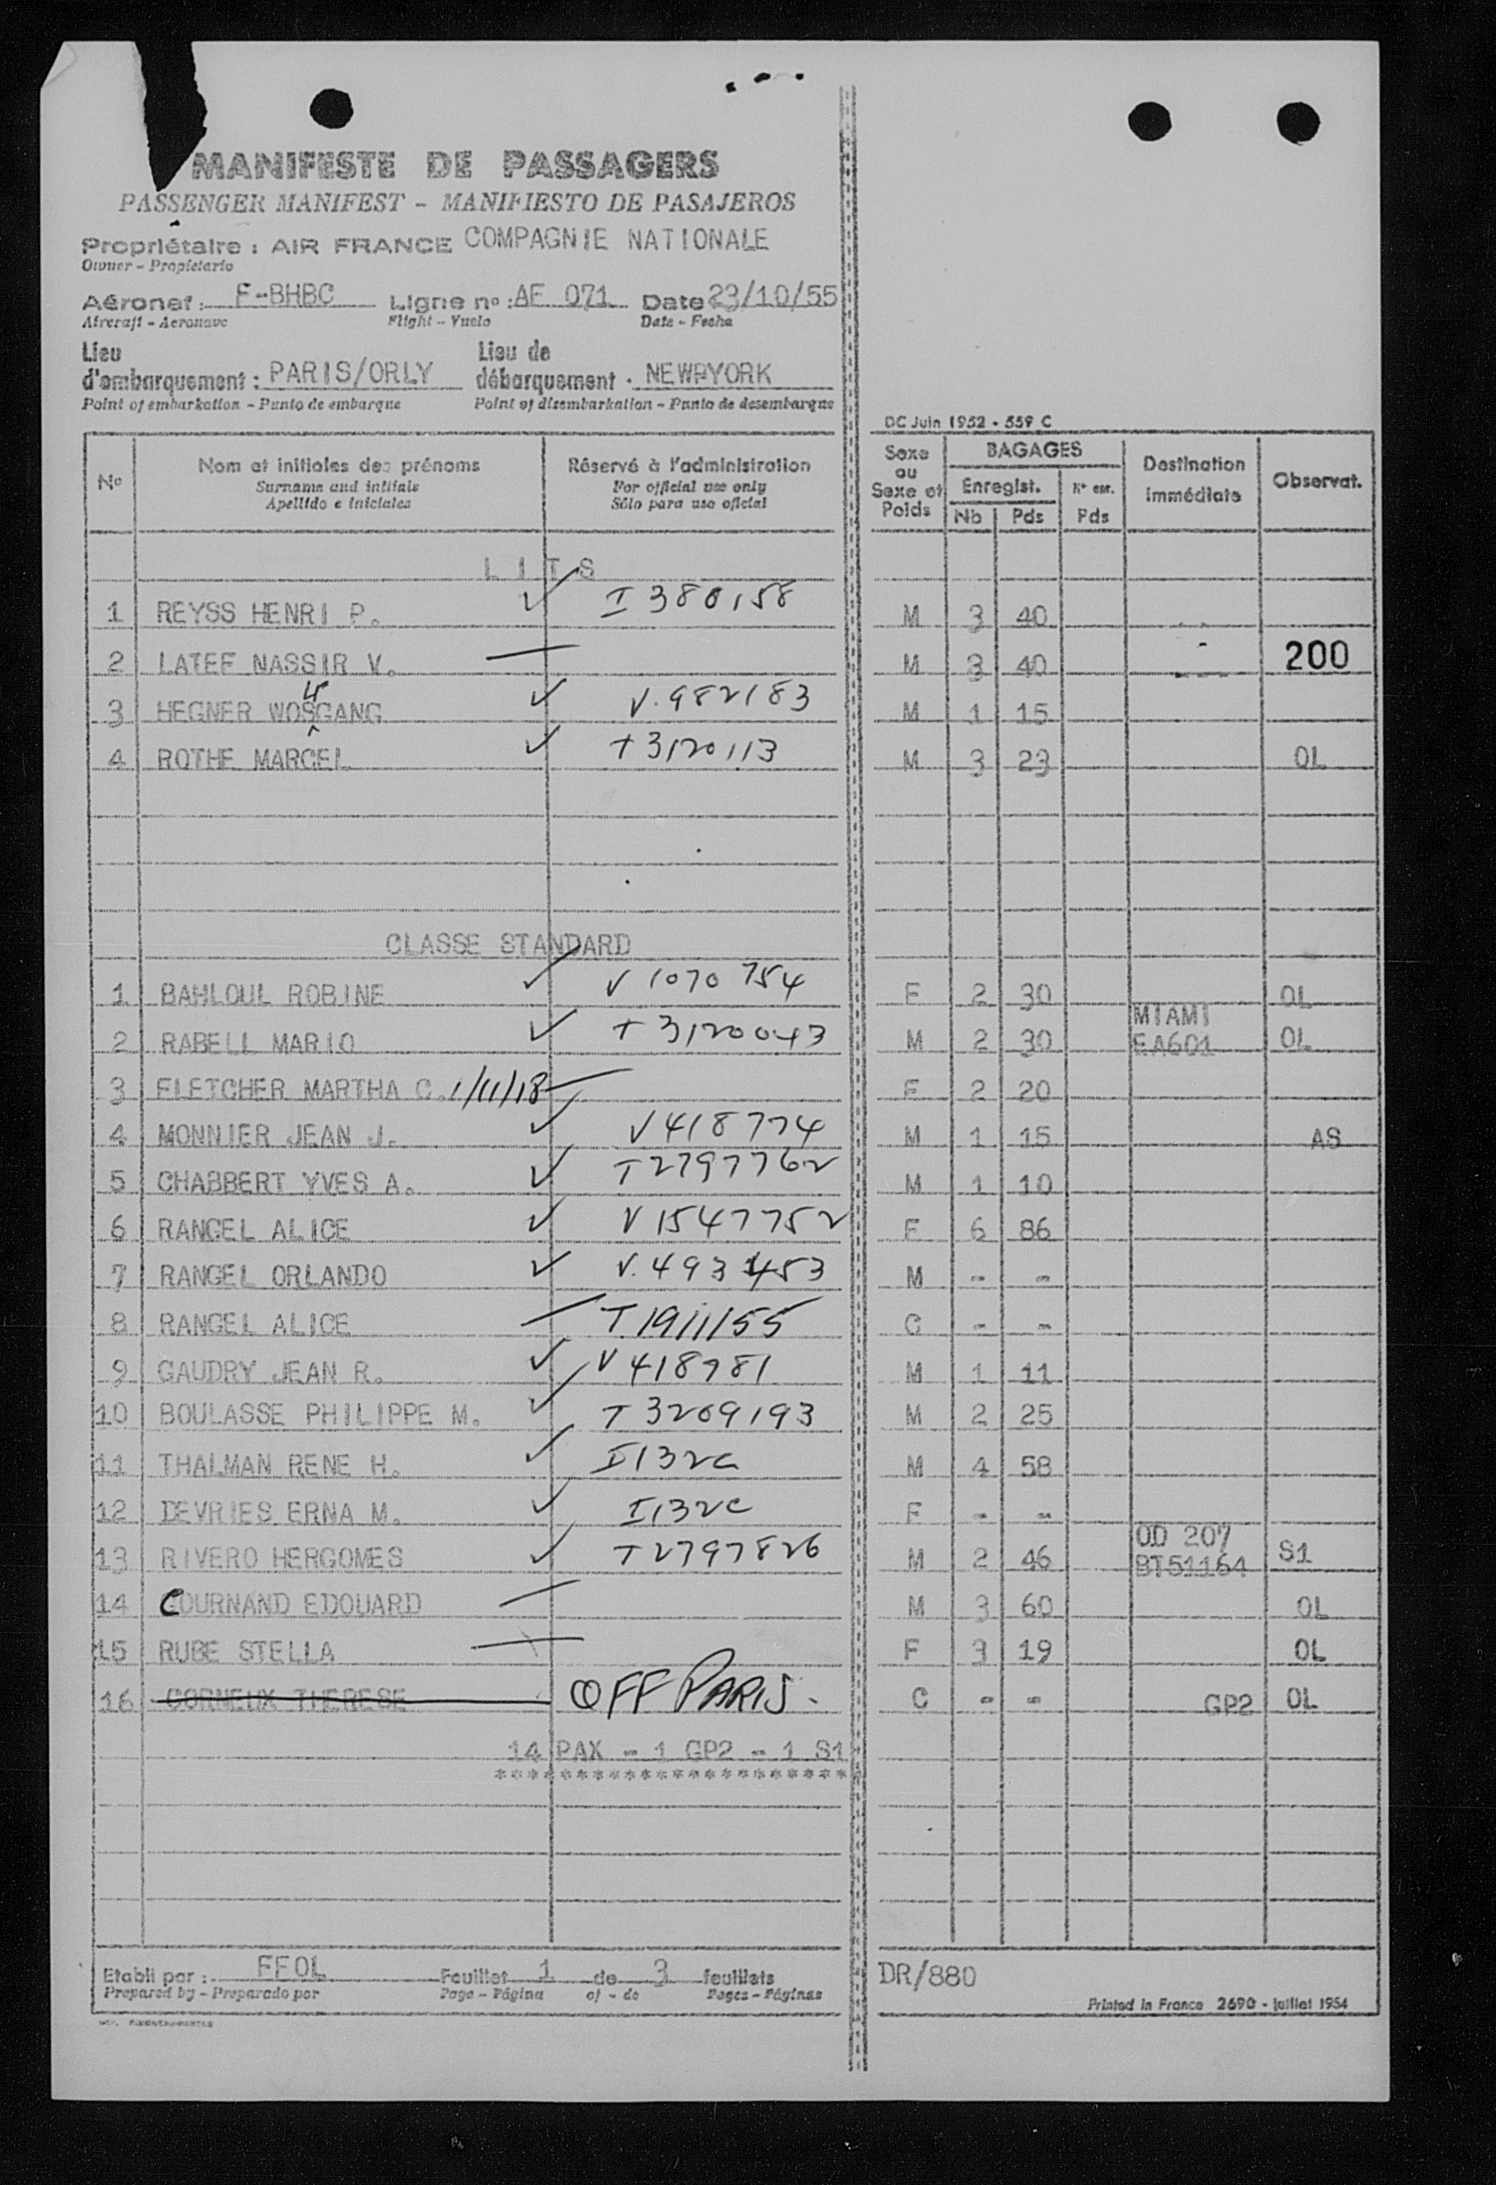 MANIFESTE DE PASSAGERS
PASSENGER MANIFEST - MANIFIESTO DE PASAJEROS
Propriétaire : AIR FRANCE COMPAGNIE NATIONALE
Owner - Propietario
Aéronef : F-BHBC Ligne nº : AF 071 Date 23/10/55
Aircraft - Aeronave Flight - Vuelo Date - Fecha
Lieu d'embarquement : PARIS/ORLY Lieu de débarquement . NEWPYORK
Point of embarkation - Punto de embarque Point of disembarkation - Punto de desembarque
DC Juin 1952 - 559 C
Nº Nom et initiales des prénoms Réservé à l'administration Sexe ou Sexe et Poids BAGAGES Destination immédiate Observat.
Surname and initials For official use only Enregist. Nº enr.
Apellido e iniciales Sólo para uso oficial Nb Pds Pds
L I T S
1 REYSS HENRI P. ✓ I 380158 M 3 40
2 LATEF NASSIR V. — M 3 40 200
3 HEGNER WOSGANG lf ✓ V.982183 M 1 15
4 ROTHE MARCEL ✓ T3120113 M 3 23 OL
CLASSE STANDARD
1 BAHLOUL ROBINE ✓ V 1070 754 F 2 30 OL
2 RABELL MARIO ✓ T 3120043 M 2 30 MIAMI EA601 OL
3 FLETCHER MARTHA C. 1/11/18 — F 2 20
4 MONNIER JEAN J. ✓ V418774 M 1 15 AS
5 CHABBERT YVES A. ✓ T2797762 M 1 10
6 RANGEL ALICE ✓ V1547752 F 6 86
7 RANGEL ORLANDO ✓ V.493453 M - -
8 RANGEL ALICE — T1911155 C - -
9 GAUDRY JEAN R. ✓ V418781 M 1 11
10 BOULASSE PHILIPPE M. ✓ T3209193 M 2 25
11 THALMAN RENE H. ✓ I132C M 4 58
12 DEVRIES ERNA M. ✓ I132C F - -
13 RIVERO HERGOMES ✓ T2797826 M 2 46 OD 207 BT51164 S1
14 COURNAND EDOUARD — M 3 60 OL
15 RUBE STELLA — F 3 19 OL
16 CORNEUX THERESE OFF PARIS. C - - GP2 OL
14 PAX - 1 GP2 - 1 S1
**********************
Etabli par : FFOL Feuillet 1 de 3 feuillets DR/880
Prepared by - Preparado por Page - Página of - de Pages - Páginas
Printed in France 2690 - Juillet 1954